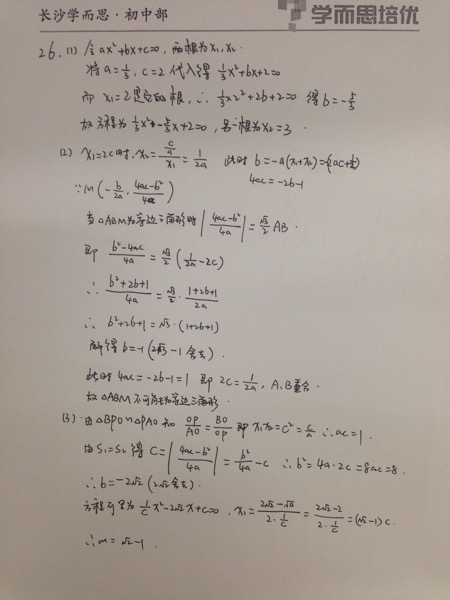 长沙学而思·初中部
学而思培优
26. (1) 令ax²+bx+c=0, 两根为x₁,x₂.
将a=1/3, c=2代入得 1/3x²+bx+2=0
而 x₁=2是它的根, ∴ 1/3×2²+2b+2=0 得b=-5/3
故方程为1/3x²-5/3x+2=0, 另一根为x₂=3.
(2) x₁=2c时, x₂=(c/a)/x₁=1/2a 此时 b=-a(x₁+x₂)=-(2ac+1/2)
4ac=-2b-1
∵M(-b/2a, (4ac-b²)/4a)
当△ABM为等边三角形时|(4ac-b²)/4a|=√3/2 AB.
即 (b²-4ac)/4a=√3/2(1/2a-2c)
∴ (b²+2b+1)/4a=√3/2·(1+2b+1)/2a
∴ b²+2b+1=√3·(1+2b+1)
解得b=-1(2√3-1舍去).
此时4ac=-2b-1=1 即2c=1/2a, A,B重合.
故△ABM不可能为等边三角形.
(3) 由△BPO∽△PAO知 OP/AO=BO/OP 即 x₁x₂=c²=c/a ∴ac=1.
由S₁=S₂得 C=|(4ac-b²)/4a|=b²/4a-c ∴b²=4a·2c=8ac=8.
∴b=-2√2(2√2舍去).
方程可写为1/c x²-2√2x+c=0, x₁=(2√2-√(8-4))/(2·1/c)=(2√2-2)/(2·1/c)=(√2-1)c.
∴m=√2-1.